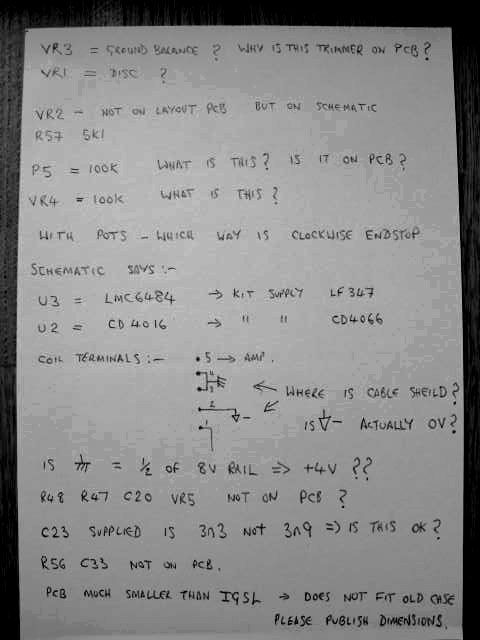 VR3 = GROUND BALANCE ? WHY IS THIS TRIMMER ON PCB?
VR1 = DISC ?
VR2 - NOT ON LAYOUT PCB BUT ON SCHEMATIC
R57 5K1
P5 = 100K WHAT IS THIS? IS IT ON PCB?
VR4 = 100K WHAT IS THIS?
WITH POTS - WHICH WAY IS CLOCKWISE ENDSTOP
SCHEMATIC SAYS :-
U3 = LMC6484 → KIT SUPPLY LF347
U2 = CD4016 → " " CD4066
COIL TERMINALS :- 5 → AMP.
4
3
WHERE IS CABLE SHEILD?
2
IS - ACTUALLY 0V?
1
IS = 1/2 OF 8V RAIL => +4V ??
R48 R47 C20 VR5 NOT ON PCB ?
C23 SUPPLIED IS 3n3 NOT 3n9 => IS THIS OK?
R56 C33 NOT ON PCB.
PCB MUCH SMALLER THAN IGSL → DOES NOT FIT OLD CASE
PLEASE PUBLISH DIMENSIONS.